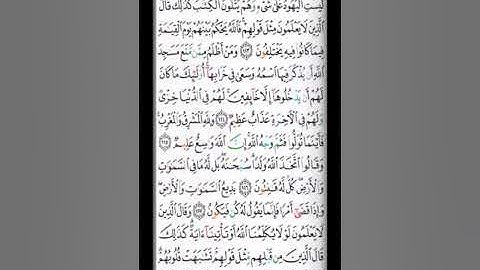 لَيْسَتِ ٱلْيَهُودُ عَلَىٰ شَىْءٍ وَهُمْ يَتْلُونَ ٱلْكِتَٰبَ كَذَٰلِكَ قَالَ
ٱلَّذِينَ لَا يَعْلَمُونَ مِثْلَ قَوْلِهِمْ فَٱللَّهُ يَحْكُمُ بَيْنَهُمْ يَوْمَ ٱلْقِيَٰمَةِ
فِيمَا كَانُوا۟ فِيهِ يَخْتَلِفُونَ ١١٣ وَمَنْ أَظْلَمُ مِمَّن مَّنَعَ مَسَٰجِدَ
ٱللَّهِ أَن يُذْكَرَ فِيهَا ٱسْمُهُۥ وَسَعَىٰ فِى خَرَابِهَآ أُو۟لَٰٓئِكَ مَا كَانَ
لَهُمْ أَن يَدْخُلُوهَآ إِلَّا خَآئِفِينَ لَهُمْ فِى ٱلدُّنْيَا خِزْىٌ
وَلَهُمْ فِى ٱلْءَاخِرَةِ عَذَابٌ عَظِيمٌ ١١٤ وَلِلَّهِ ٱلْمَشْرِقُ وَٱلْمَغْرِبُ
فَأَيْنَمَا تُوَلُّوا۟ فَثَمَّ وَجْهُ ٱللَّهِ إِنَّ ٱللَّهَ وَٰسِعٌ عَلِيمٌ ١١٥
وَقَالُوا۟ ٱتَّخَذَ ٱللَّهُ وَلَدًا سُبْحَٰنَهُۥ بَل لَّهُۥ مَا فِى ٱلسَّمَٰوَٰتِ
وَٱلْأَرْضِ كُلٌّ لَّهُۥ قَٰنِتُونَ ١١٦ بَدِيعُ ٱلسَّمَٰوَٰتِ وَٱلْأَرْضِ
وَإِذَا قَضَىٰٓ أَمْرًا فَإِنَّمَا يَقُولُ لَهُۥ كُن فَيَكُونُ ١١٧ وَقَالَ ٱلَّذِينَ
لَا يَعْلَمُونَ لَوْلَا يُكَلِّمُنَا ٱللَّهُ أَوْ تَأْتِينَآ ءَايَةٌ كَذَٰلِكَ
قَالَ ٱلَّذِينَ مِن قَبْلِهِم مِّثْلَ قَوْلِهِمْ تَشَٰبَهَتْ قُلُوبُهُمْ